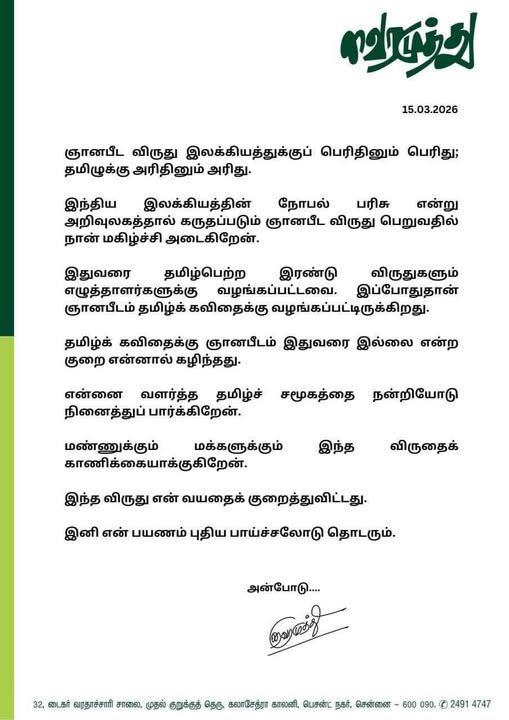 வைரமுத்து
15.03.2026
ஞானபீட விருது இலக்கியத்துக்குப் பெரிதினும் பெரிது;
தமிழுக்கு அரிதினும் அரிது.
இந்திய இலக்கியத்தின் நோபல் பரிசு என்று
அறிவுலகத்தால் கருதப்படும் ஞானபீட விருது பெறுவதில்
நான் மகிழ்ச்சி அடைகிறேன்.
இதுவரை தமிழ்பெற்ற இரண்டு விருதுகளும்
எழுத்தாளர்களுக்கு வழங்கப்பட்டவை. இப்போதுதான்
ஞானபீடம் தமிழ்க் கவிதைக்கு வழங்கப்பட்டிருக்கிறது.
தமிழ்க் கவிதைக்கு ஞானபீடம் இதுவரை இல்லை என்ற
குறை என்னால் கழிந்தது.
என்னை வளர்த்த தமிழ்ச் சமூகத்தை நன்றியோடு
நினைத்துப் பார்க்கிறேன்.
மண்ணுக்கும் மக்களுக்கும் இந்த விருதைக்
காணிக்கையாக்குகிறேன்.
இந்த விருது என் வயதைக் குறைத்துவிட்டது.
இனி என் பயணம் புதிய பாய்ச்சலோடு தொடரும்.
அன்போடு....
வைரமுத்து
32, டைகர் வரதாச்சாரி சாலை, முதல் குறுக்குத் தெரு, கலாசேத்ரா காலனி, பெசன்ட் நகர், சென்னை – 600 090. ✆ 2491 4747